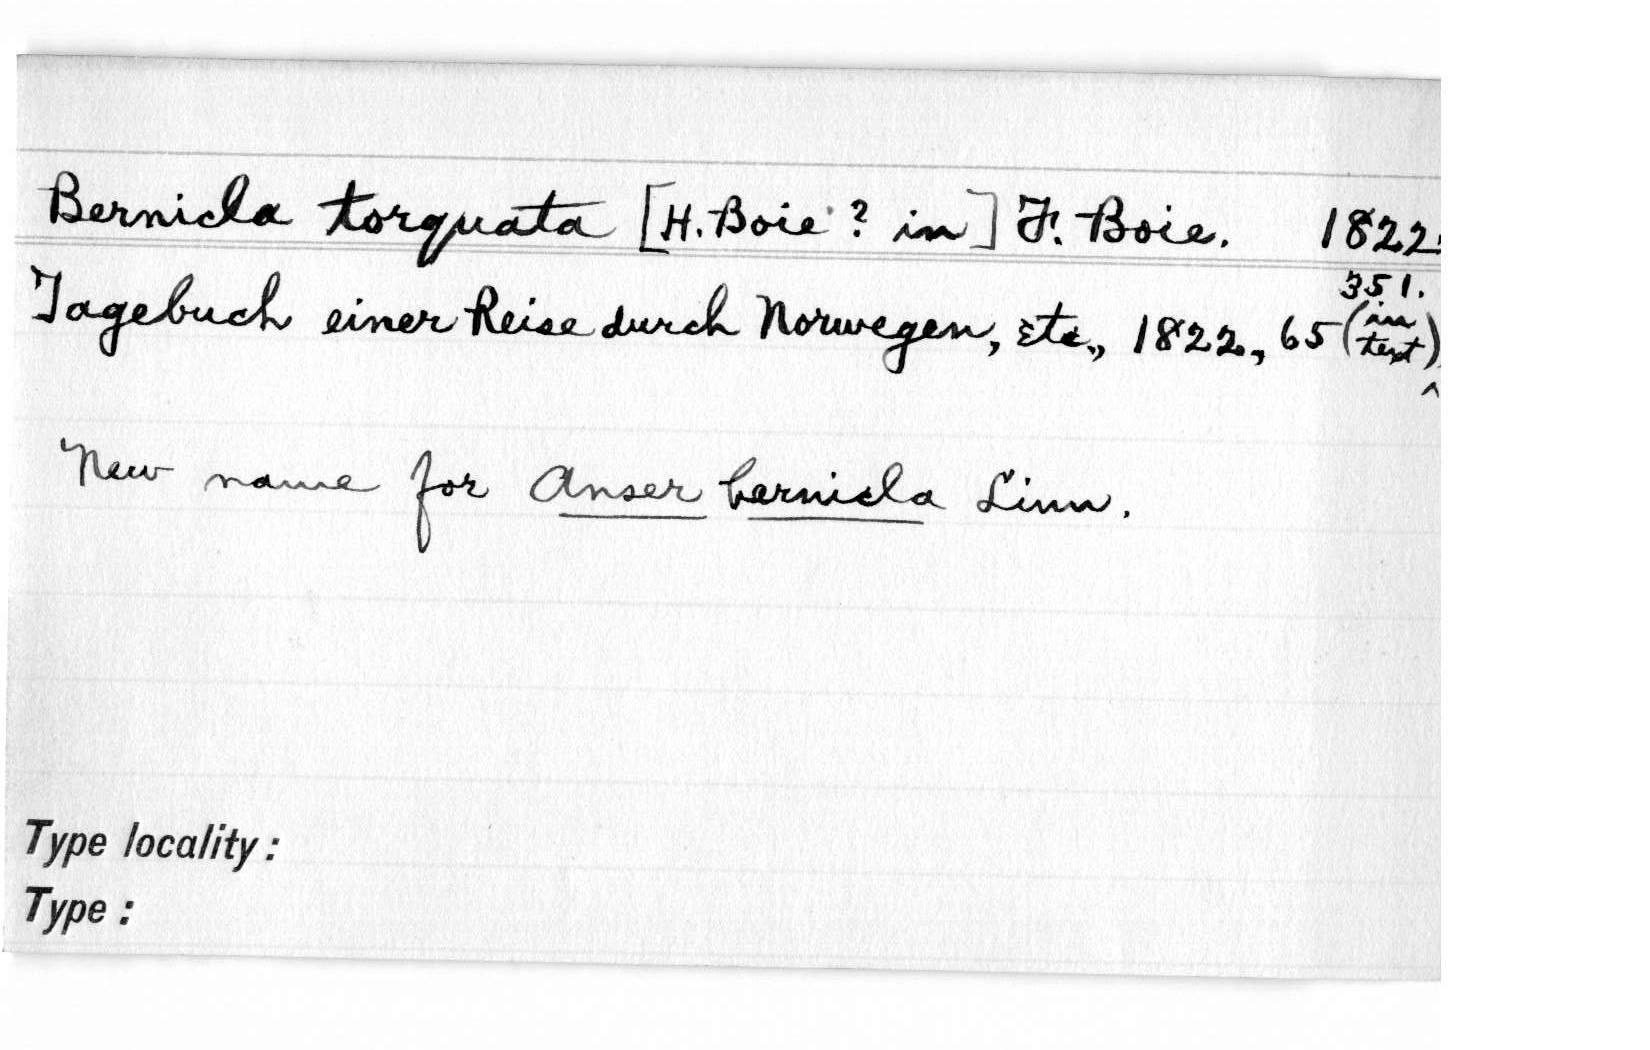 Bernicla torquata [H. Boie ? in] F. Boie. 1822.
Tagebuch einer Reise durch Norwegen, etc., 1822, 65 (in text) ^ 351.
New name for Anser bernicla Linn.
Type locality :
Type :